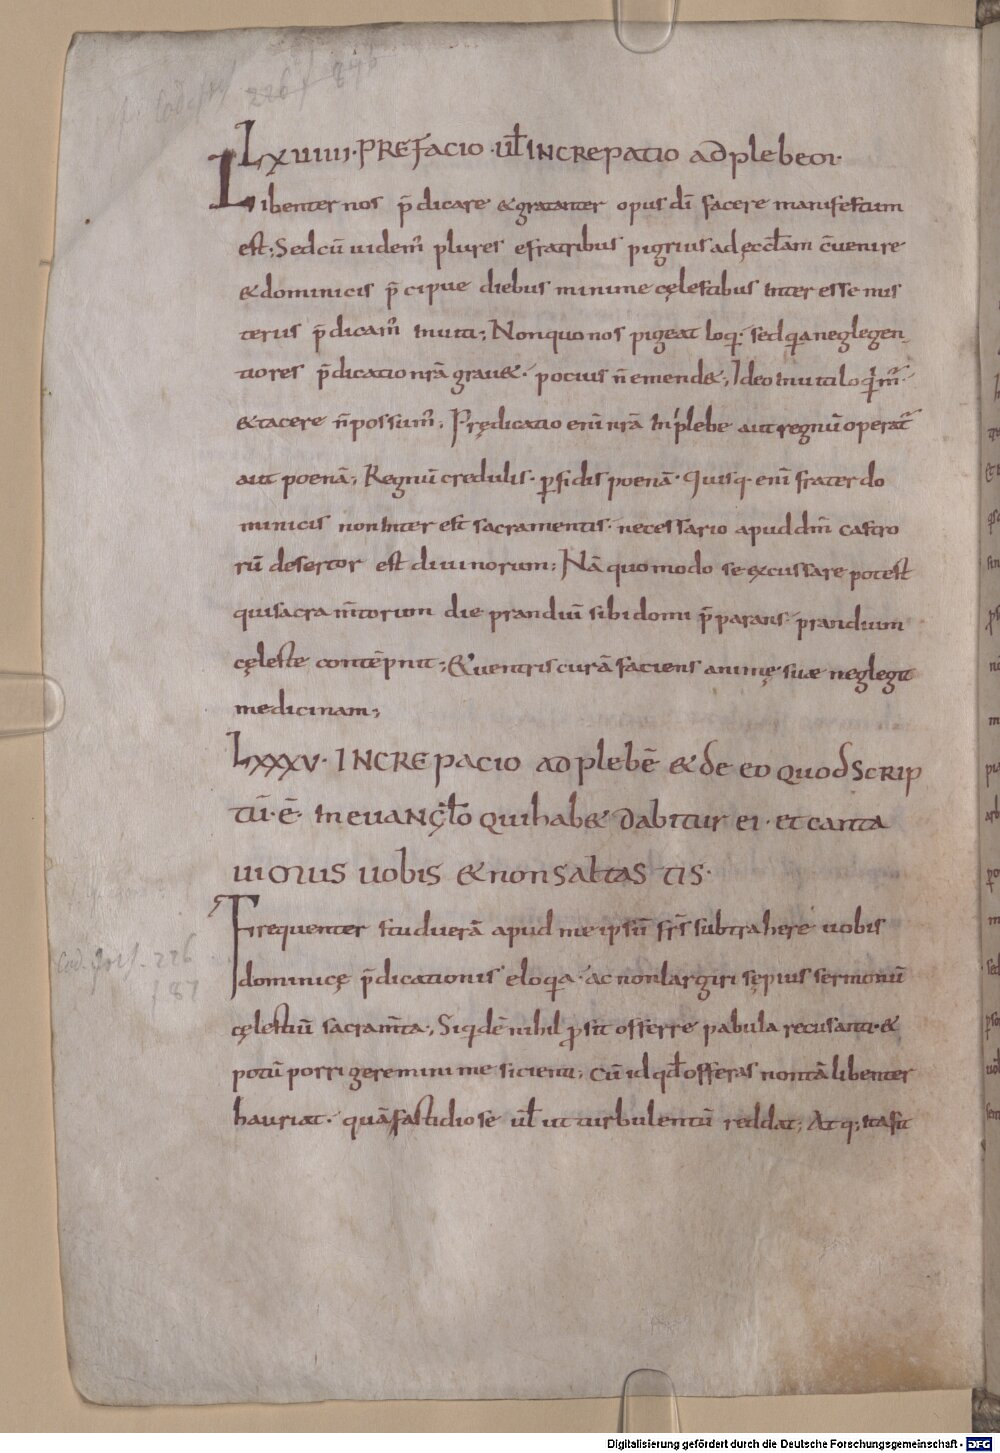 Lxuıııı· PREFacio · uł INCREpatio adplebeoı·
Libenter nos p̄dicare &gratanter opus dī facere manifestum
est; Sed cū uidem̄ plures efratribus pigrius ad ęccłam c̄uenire
& dominicis p̄cipue diebus minime cęlestibus Interesse mis
teriis p̄dicam̄ Inuiti; Non quo nos pigeat loq̄· sed qa neglegen
tiores p̄dicatio nr̄a grau&· pocius n̄ emend&; Ideo Inuiti loqim̄·
&tacere n̄ possum̄; Prędicatio enī nr̄a In plebe aut regnū operat̄
aut poenā; Regnū credulis· ꝑfidis poenā· Quisq· enī frater do
minicis non Inter est sacramentis· necessario apud dm̄ castro
rū desertor est diuinorum; Nā quomodo se excussare potest
qui sacram̄torum die prandiū sibi domi p̄parans· prandium
cęleste contēpnit; & uentris curā faciens animę suæ neglegit
medicinam;
LXXXV· INCREpacio ad plebē & de eo quod SCRIP
tū· ē· In euANgło Qui hab& dabitur ei· et canta
uimus uobis & non saltastis·
Frequenter studuerā apud meipsū frs̄ subtrahere uobis
dominicę p̄dicationis eloqa· ac non largiri sępius sermonū
cęlestiū sacram̄ta; Siqdē nihil ꝓsit offerre pabula recusanti· &
potū porrigere minime sicienti; Cū id qđ offeras non tā libenter
hauriat· quā fastidiose uł ut turbulentū reddat; Atq; ita fit
Cod. 226
f 87
Digitalisierung gefördert durch die Deutsche Forschungsgemeinschaft - DFG